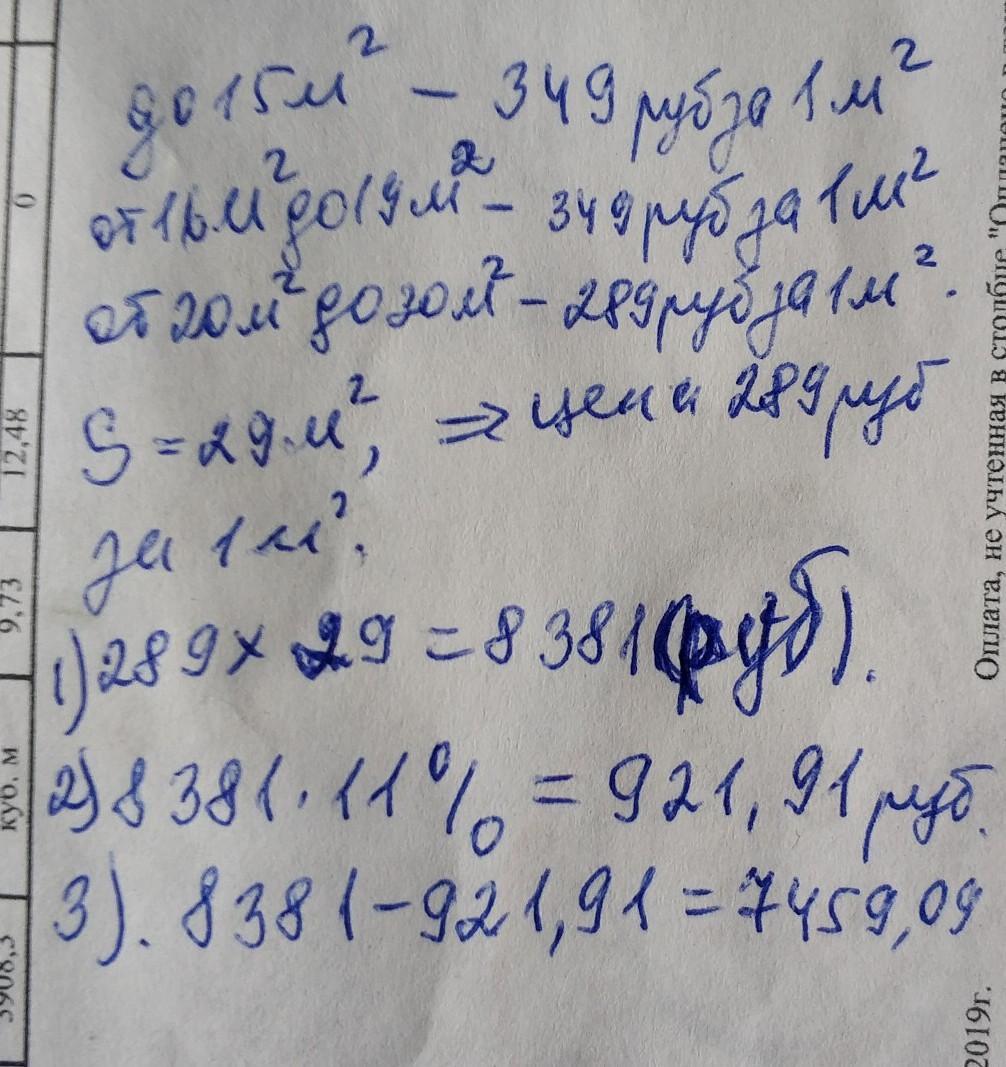 до 15 м² – 349 руб за 1 м²
от 16 м² до 19 м² – 349 руб за 1 м²
от 20 м² до 30 м² – 289 руб за 1 м².
S = 29 м², ⇒ цена 289 руб
за 1 м².
1) 289 × 29 = 8381 (руб).
2) 8381 · 11% = 921,91 руб.
3). 8381 – 921,91 = 7459,09
0
12,48
9,73
куб. м
3908,3
Оплата, не учтенная в столбце "Оплачено
2019г.